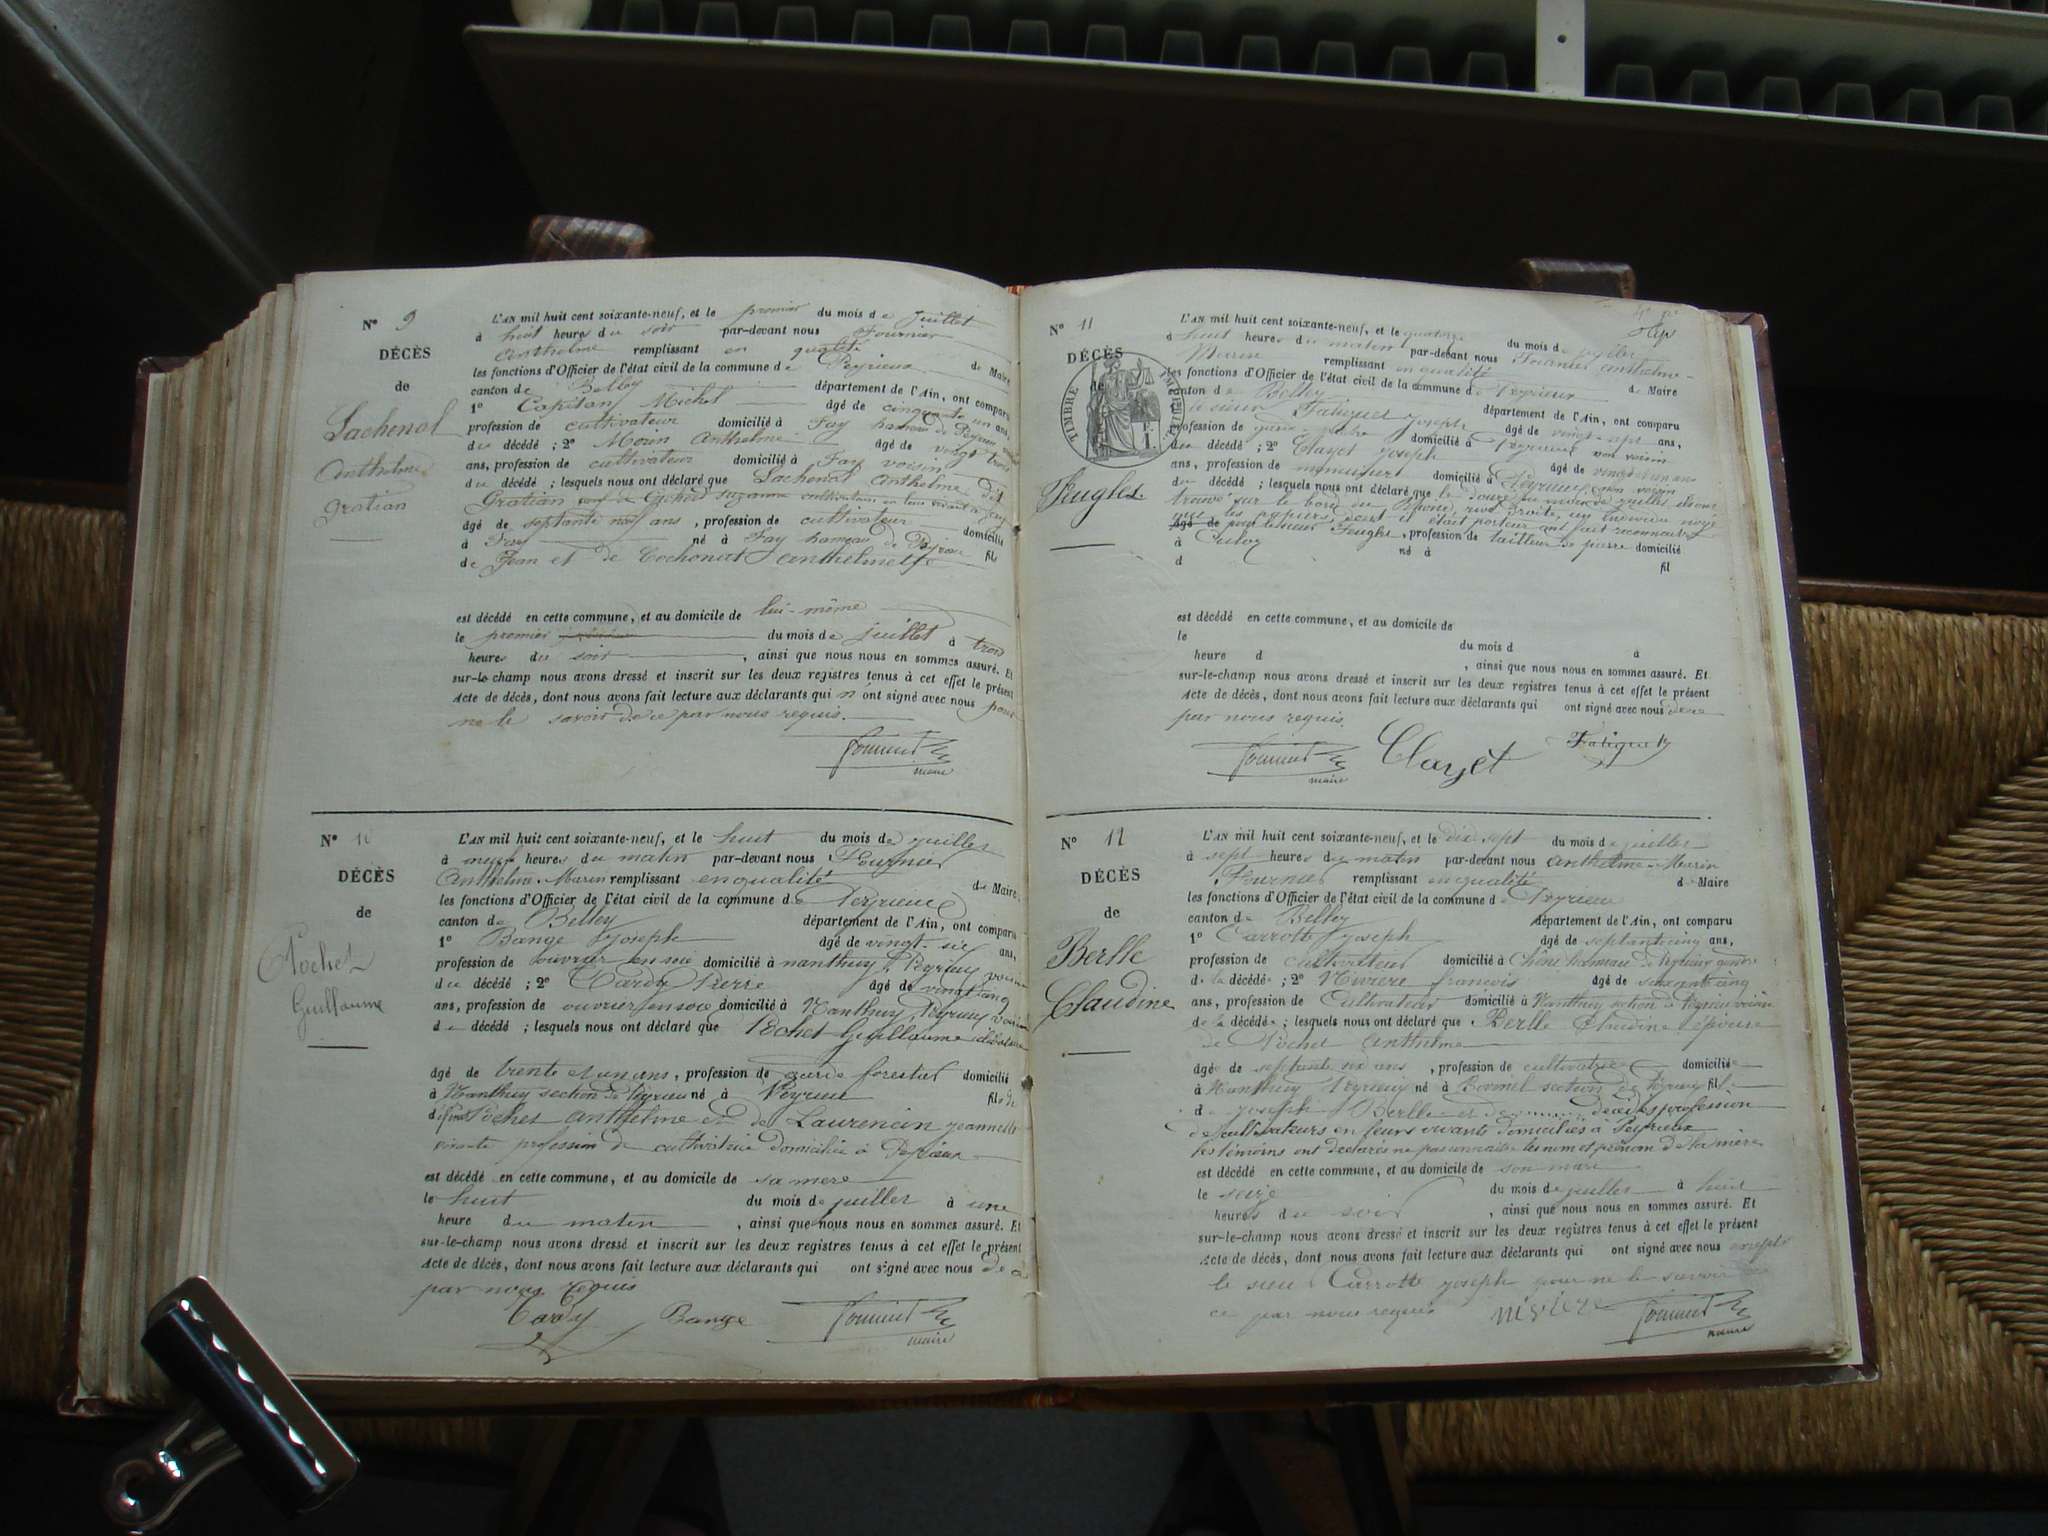 N° 9
DÉCÈS
de
Lachenal
Anthelme
gratian
L'AN mil huit cent soixante-neuf, et le premier du mois de juillet
à huit heures du soir par-devant nous Fournier
Anthelme remplissant en qualité de Maire
les fonctions d'Officier de l'état civil de la commune de Peyrieux
canton de Belley département de l'Ain, ont comparu
1° Capitan Michel âgé de cinquante un ans,
profession de cultivateur domicilié à Fay hameau de Peyrieux
du décédé ; 2° Morin Anthelme âgé de vingt trois
ans, profession de cultivateur domicilié à Fay voisin
du décédé ; lesquels nous ont déclaré que Lachenal Anthelme dit
Gratian suzanne cultivateurs en leur vivant à fay
âgé de septante neuf ans, profession de cultivateur domicilié
à Fay né à Fay hameau de Peyrieux fils
de Jean et de Cochonat Anthelmette
est décédé en cette commune, et au domicile de lui-même
le premier du mois de juillet à trois
heures du soir, ainsi que nous nous en sommes assuré. Et
sur-le-champ nous avons dressé et inscrit sur les deux registres tenus à cet effet le présent
Acte de décès, dont nous avons fait lecture aux déclarants qui n'ont signé avec nous pour
ne le savoir de ce par nous requis.
maire
N° 10
DÉCÈS
de
Pochet
Guillaume
L'AN mil huit cent soixante-neuf, et le huit du mois de juillet
à neuf heures du matin par-devant nous Fournier
Anthelme Marin remplissant en qualité de Maire
les fonctions d'Officier de l'état civil de la commune de Peyrieux
canton de Belley département de l'Ain, ont comparu
1° Bange Joseph âgé de vingt-six ans,
profession de ouvrier en soie domicilié à nanthuy, Peyrieux voisin
du décédé ; 2° Tardy Pierre âgé de vingt cinq
ans, profession de ouvrier en soie domicilié à Nanthuy, Peyrieux voisin
du décédé ; lesquels nous ont déclaré que Pochet Guillaume célibataire
âgé de trente et un ans, profession de garde forestier domicilié
à Nanthuy section de Peyrieu né à Peyrieu fils
de feu Pochet Anthelme et de Laurencin jeannette
vivante profession de cultivatrice domiciliée à Peyrieux
est décédé en cette commune, et au domicile de sa mère
le huit du mois de juillet à une
heure du matin, ainsi que nous nous en sommes assuré. Et
sur-le-champ nous avons dressé et inscrit sur les deux registres tenus à cet effet le présent
Acte de décès, dont nous avons fait lecture aux déclarants qui ont signé avec nous de ce
par nous requis
Tardy Bange
maire
N° 11
DÉCÈS
de
TIMBRE IMPÉRIAL
Feugles
L'AN mil huit cent soixante-neuf, et le quatorze du mois de juillet
à huit heures du matin par-devant nous Fournier anthelme
Marin remplissant en qualité de Maire
les fonctions d'Officier de l'état civil de la commune de Peyrieux
canton de Belley département de l'Ain, ont comparu
le sieur Fatiguet Joseph âgé de vingt-sept ans,
profession de garde domicilié à Peyrieux non voisin
du décédé ; 2° Clayet Joseph âgé de vingt
ans, profession de menuisier domicilié à Peyrieux, non voisin
du décédé ; lesquels nous ont déclaré que le douze du mois de juillet
trouvé sur le bord du Rhône, rive droite, un individu noyé
que les papiers dont il était porteur ont fait reconnaitre
âgé de pour le sieur Feugles, profession de tailleur de pierre domicilié
à Culoz né à
d fil
est décédé en cette commune, et au domicile de
le du mois d à
heure d , ainsi que nous nous en sommes assuré. Et
sur-le-champ nous avons dressé et inscrit sur les deux registres tenus à cet effet le présent
Acte de décès, dont nous avons fait lecture aux déclarants qui ont signé avec nous de ce
par nous requis.
Clayet Fatiguet
maire
N° 12
DÉCÈS
de
Berlle
Claudine
L'AN mil huit cent soixante-neuf, et le dix sept du mois de juillet
à sept heures du matin par-devant nous Anthelme-Marin
Fournier remplissant en qualité de Maire
les fonctions d'Officier de l'état civil de la commune de Peyrieu
canton de Belley département de l'Ain, ont comparu
1° Carrotte Joseph âgé de septante cinq ans,
profession de cultivateur domicilié à Chêne hameau de Peyrieux
de la décédée ; 2° Nivière françois âgé de
ans, profession de Cultivateur domicilié à Nanthuy section de Peyrieu voisin
de la décédée ; lesquels nous ont déclaré que Berlle Claudine épouse
de Pochet Anthelme
âgée de septante six ans, profession de cultivatrice domiciliée
à Nanthuy Peyrieux né à section de Peyrieux fille
de Joseph Berlle et de ...... décédés profession
de cultivateurs en leurs vivants domiciliés à Peyrieux
les témoins ont déclarés ne pas connaitre les nom et prénom de la mère
est décédé en cette commune, et au domicile de son mari
le seize du mois de juillet à huit
heures du soir, ainsi que nous nous en sommes assuré. Et
sur-le-champ nous avons dressé et inscrit sur les deux registres tenus à cet effet le présent
Acte de décès, dont nous avons fait lecture aux déclarants qui ont signé avec nous excepté
le sieur Carrotte Joseph pour ne le savoir de
ce par nous requis
maire